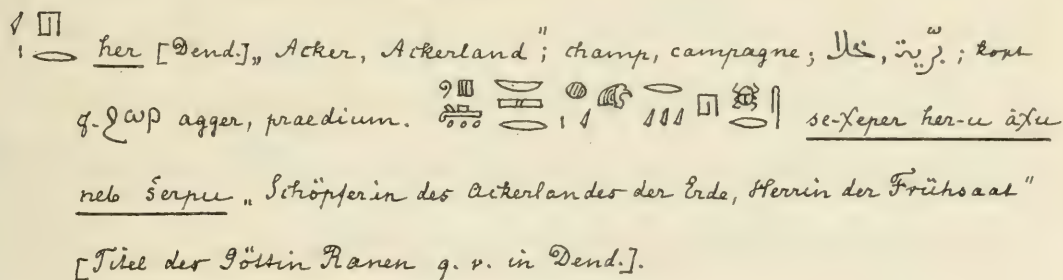 her [Dend.] „Acker, Ackerland“; champ, campagne; خلا, برّية; kopt
ϩⲱⲣ agger, praedium. se-χeper her-u àχu
neb šerpu „Schöpferin des Ackerlandes der Erde, Herrin der Frühsaat“
[Titel der Göttin Ranen q. v. in Dend.].